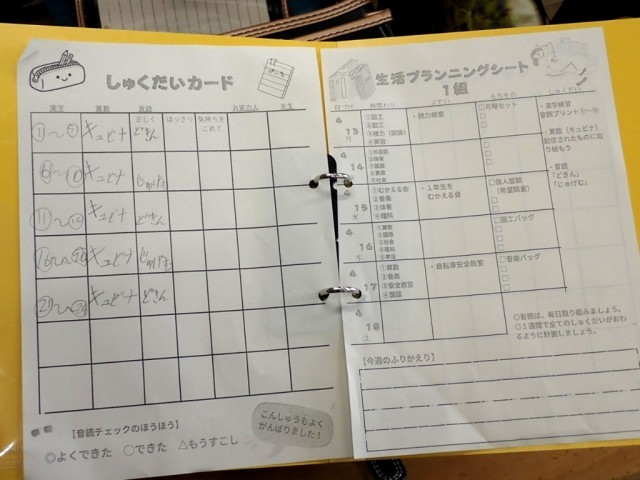 しゅくだいカード
漢字 算数 音読 お家の人 先生
正しく はっきり 気持ちをこめて
①〜⑤ キュビナ どきん
⑥〜⑩ キュビナ じゅげむ
⑪〜⑮ キュビナ どきん
キュビナ じゅげむ
キュビナ どきん
【音読チェックのほうほう】
◎よくできた ○できた △もうすこし
こんしゅうもよく
がんばりました！
生活プランニングシート
1組
日づけ 時間わり よてい もちもの しゅくだい
4
13
月
①図工
②図工
③学力（国語）
④算数
・学力検査
□月曜セット
□
□
□
4
14
②体育
③国語
④算数
□
□
□
4
15
水
①むかえる会
②音楽
③体育
④理科
・１年生を
むかえる会
□個人面談
（希望調査）
□
□
4
16
①算数
②国語
③社会
④理科
□図工バッグ
□
□
□
4
17
①算数
②音楽
③安全教室
④国語
・自転車安全教室
□音楽バッグ
□
□
□
4
18
土
・漢字練習
音読プリント
・算数（キュビナ）
配信されたものに取
り組もう
・音読
「どきん」
「じゅげむ」
◎音読は、毎日取り組みましょう。
◎１週間で全てのしゅくだいがおわ
るように計画しましょう。
【今週のふりかえり】